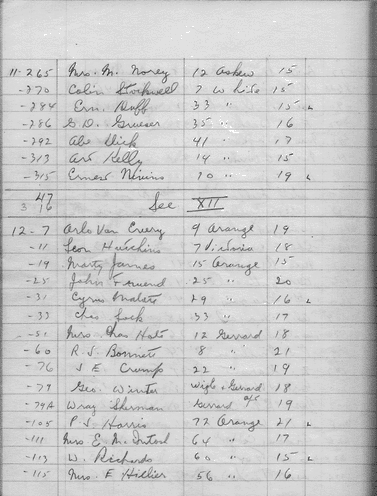 11-265 Mrs. M. Norey 12 Askew 15
-270 Colin Stockwell 7 White 15
-284 Ern. Huff 33 " 15 L
-286 G. D. Grueser 35 " 16
-292 Abe Dick 41 " 17
-313 Art Kelly 14 " 15
-315 Ernest Nivins 70 " 19 L
47
3 16 See XII
12-7 Arlo Van Every 9 Orange 19
-11 Leon Hutchins 18
-19 Marty James 15 Orange 15
-25 John 25 " 20
-31 Cyrus 29 " 16 L
-33 Chas 33 " 17
-51 Mrs Chas 12 Gerrard 18
-60 R. J. Bonnett 8 " 21
-76 J. E. Crump 22 " 19
-79 Geo. Winter & Gerrard 18
-79A Wray Sherman Gerrard 19
-105 P. J. Harris 72 Orange 21 L
-111 Mrs E. McIntosh 64 " 17
-113 W. Richards 60 " 15 L
-115 Mrs. F Hillier 56 " 16